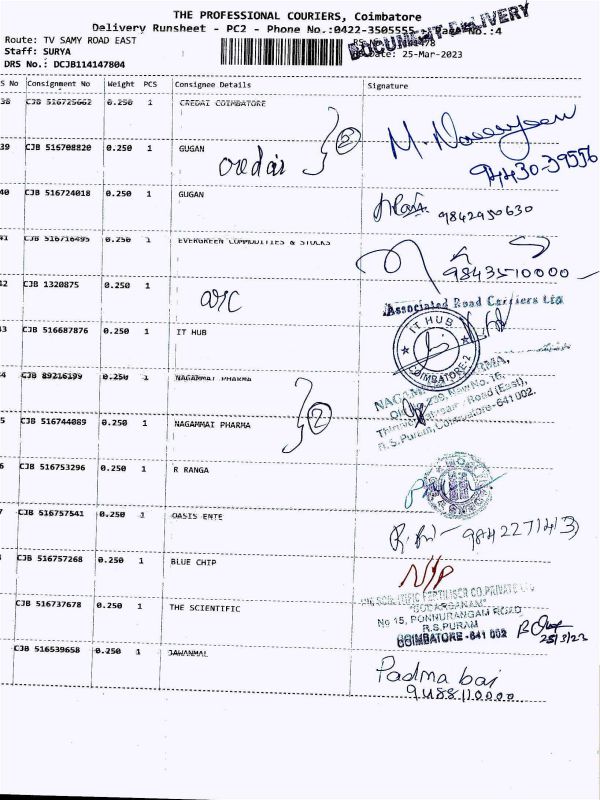 THE PROFESSIONAL COURIERS, Coimbatore
Delivery Runsheet - PC2 - Phone No.:0422-3505555 Page No.:4
DOCUMENT-DELIVERY
Route: TV SAMY ROAD EAST
Staff: SURYA
Date: 25-Mar-2023
DRS No.: DCJB114147804
S No Consignment No Weight PCS Consignee Details Signature
38 CJB 516725662 0.250 1 CREDAI COIMBATORE
2
39 CJB 516708820 0.250 1 GUGAN
credai
94430-39556
40 CJB 516724018 0.250 1 GUGAN
9842950630
41 CJB 516716495 0.250 1 EVERGREEN COMMODITIES & STOCKS
9843510000
42 CJB 1320875 0.250 1
arc
Associated Road Carriers Ltd
43 CJB 516687876 0.250 1 IT HUB
IT HUB
COIMBATORE-2
4 CJB 89216199 0.250 1 NAGAMMAI PHARMA
NAGAMMAI PHARMA,
2
5 CJB 516744089 0.250 1 NAGAMMAI PHARMA
Road (East),
R.S.Puram, Coimbatore-641 002.
6 CJB 516753296 0.250 1 R RANGA
7 CJB 516757541 0.250 1 OASIS ENTE
9842271413
CJB 516757268 0.250 1 BLUE CHIP
N/P
CJB 516737678 0.250 1 THE SCIENTIFIC
THE SCIENTIFIC FERTILISER CO.PRIVATE LTD
No 15, PONNURANGAM ROAD
R.S.PURAM
COIMBATORE -641 002
25/3/23
CJB 516539658 0.250 1 JAWANMAL
Padma bai
9488110000